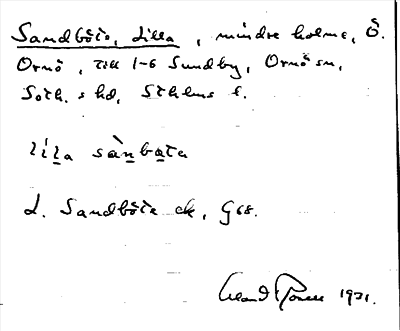 Sandböte, Lilla, mindre holme, Ö.
Ornö, till 1-6 Sundby, Ornö sn,
Soth. s hd, Sthlms l.
lila sànbøta
L. Sandböte ek, G 68.
1931.